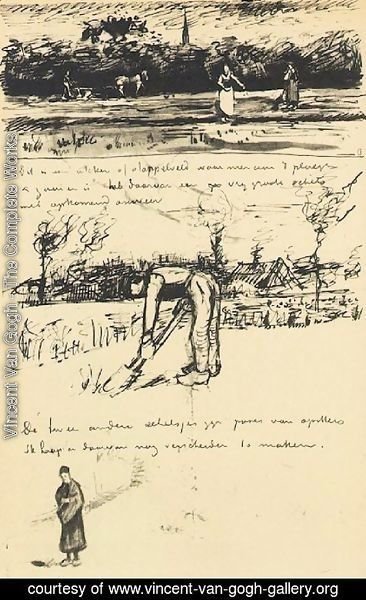 of stoppelveld waar men aan 't ploegen
is heb daarvan een groote schets
met opkomend onweer
De twee andere schetsjes zyn poses van spitters
Ik hoop er daarvan nog verscheiden te maken.
Vincent Van Gogh - The Complete Works
courtesy of www.vincent-van-gogh-gallery.org